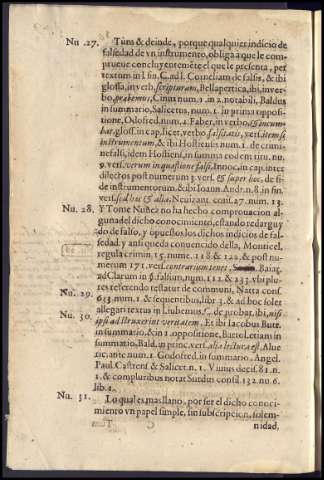 Nu. 27. Tũm & deinde, porque qualquier indicio de
falsedad de vn instrumento, obliga a que le com-
prueue concluyentemẽte el que le presenta, per
textum in l. fin. C. ad l. Corneliam de falsis, & ibi
glossa, in verb. scripturam, Bellapertica, ibi, in ver-
bo, probemus, Cinus num. 2. in 2. notabili, Baldus
in summario, Salicetus, num. 1. in prima opposi-
tione, Odofred. num. 4. Faber, in verbo
bar, gloss. in cap. licet, verbo falsitatis, vers. item si
instrumentum, & ibi Hostiensis num. 1. de crimi-
ne falsi, idem Hostiens. in summa eodem titu. nu.
9. vers. verum in quæstione falsi, Innoc. in cap. inter
dilectos post numerum 3. vers. & super hoc, de fi-
de instrumentorum, & ibi Ioann. Andr. n. 8. in fin.
vers. sed hoc & alia, Neuizan. cons. 27. num. 13.
Nu. 28. Y Tome Nuñez no ha hecho comprouacion al-
guna del dicho conocimiento, estando redargui-
do de falso, y opuestos los dichos indicios de fal-
sedad, y ansi queda conuencido della, Monticel.
regula crimin. 15. nume. 118 & 120. & post nu-
merum 171. vers. contrarium tenet, Baiar.
ad Clarum in §. falsum, num. 112. & 233. vbi plu-
Nu. 29. res referendo testatur de communi, Natta cons.
633. num. 1. & sequentibus, libr. 3. & ad hoc solet
Nu. 30. allegari textus in l. iubemus, C. de probat. ibi, nisi
ipsi adstruxerint veritatem. Et ibi Iacobus Butr.
in summario, & in 1. oppositione, Butr.
summario, Bald. in princ. vers. alia lectura est. Alue
ric. ante num. 1. Godofred. in summario. Angel.
Paul. Castrens. & Salicet. n. 1. Viuius decis. 81. n.
1. & compluribus notat Surdus consil. 132. no 6.
lib. 1.
Nu. 31. Lo qual es mas llano, por ser el dicho conoci-
miento vn papel simple, sin subscripcion, solem-
nidad,